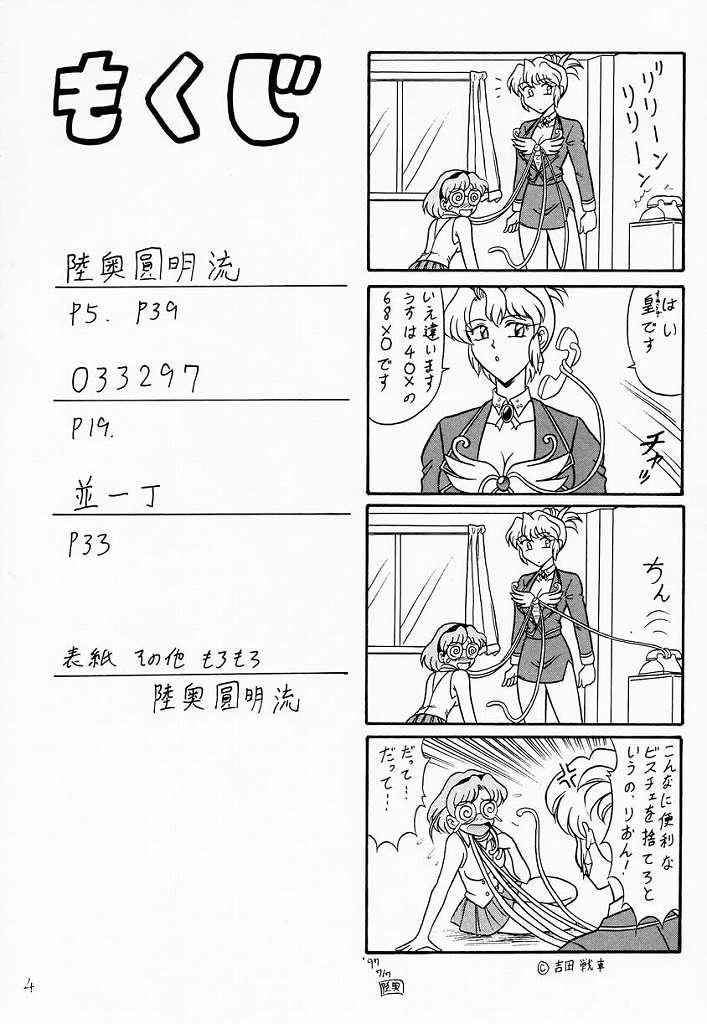 もくじ
陸奥圓明流
P5. P39
033297
P19.
並一丁
P33
表紙 その他 もろもろ
陸奥圓明流
4
リリーン
リリーン
はい
皇です
すめらぎ
いえ違います
うちは40×の
68×0です
チャッ
ちん
こんなに便利な
ビスチェを捨てろと
いうの、りおん!
だって…
だって…
'97
陸奥
©吉田戦車